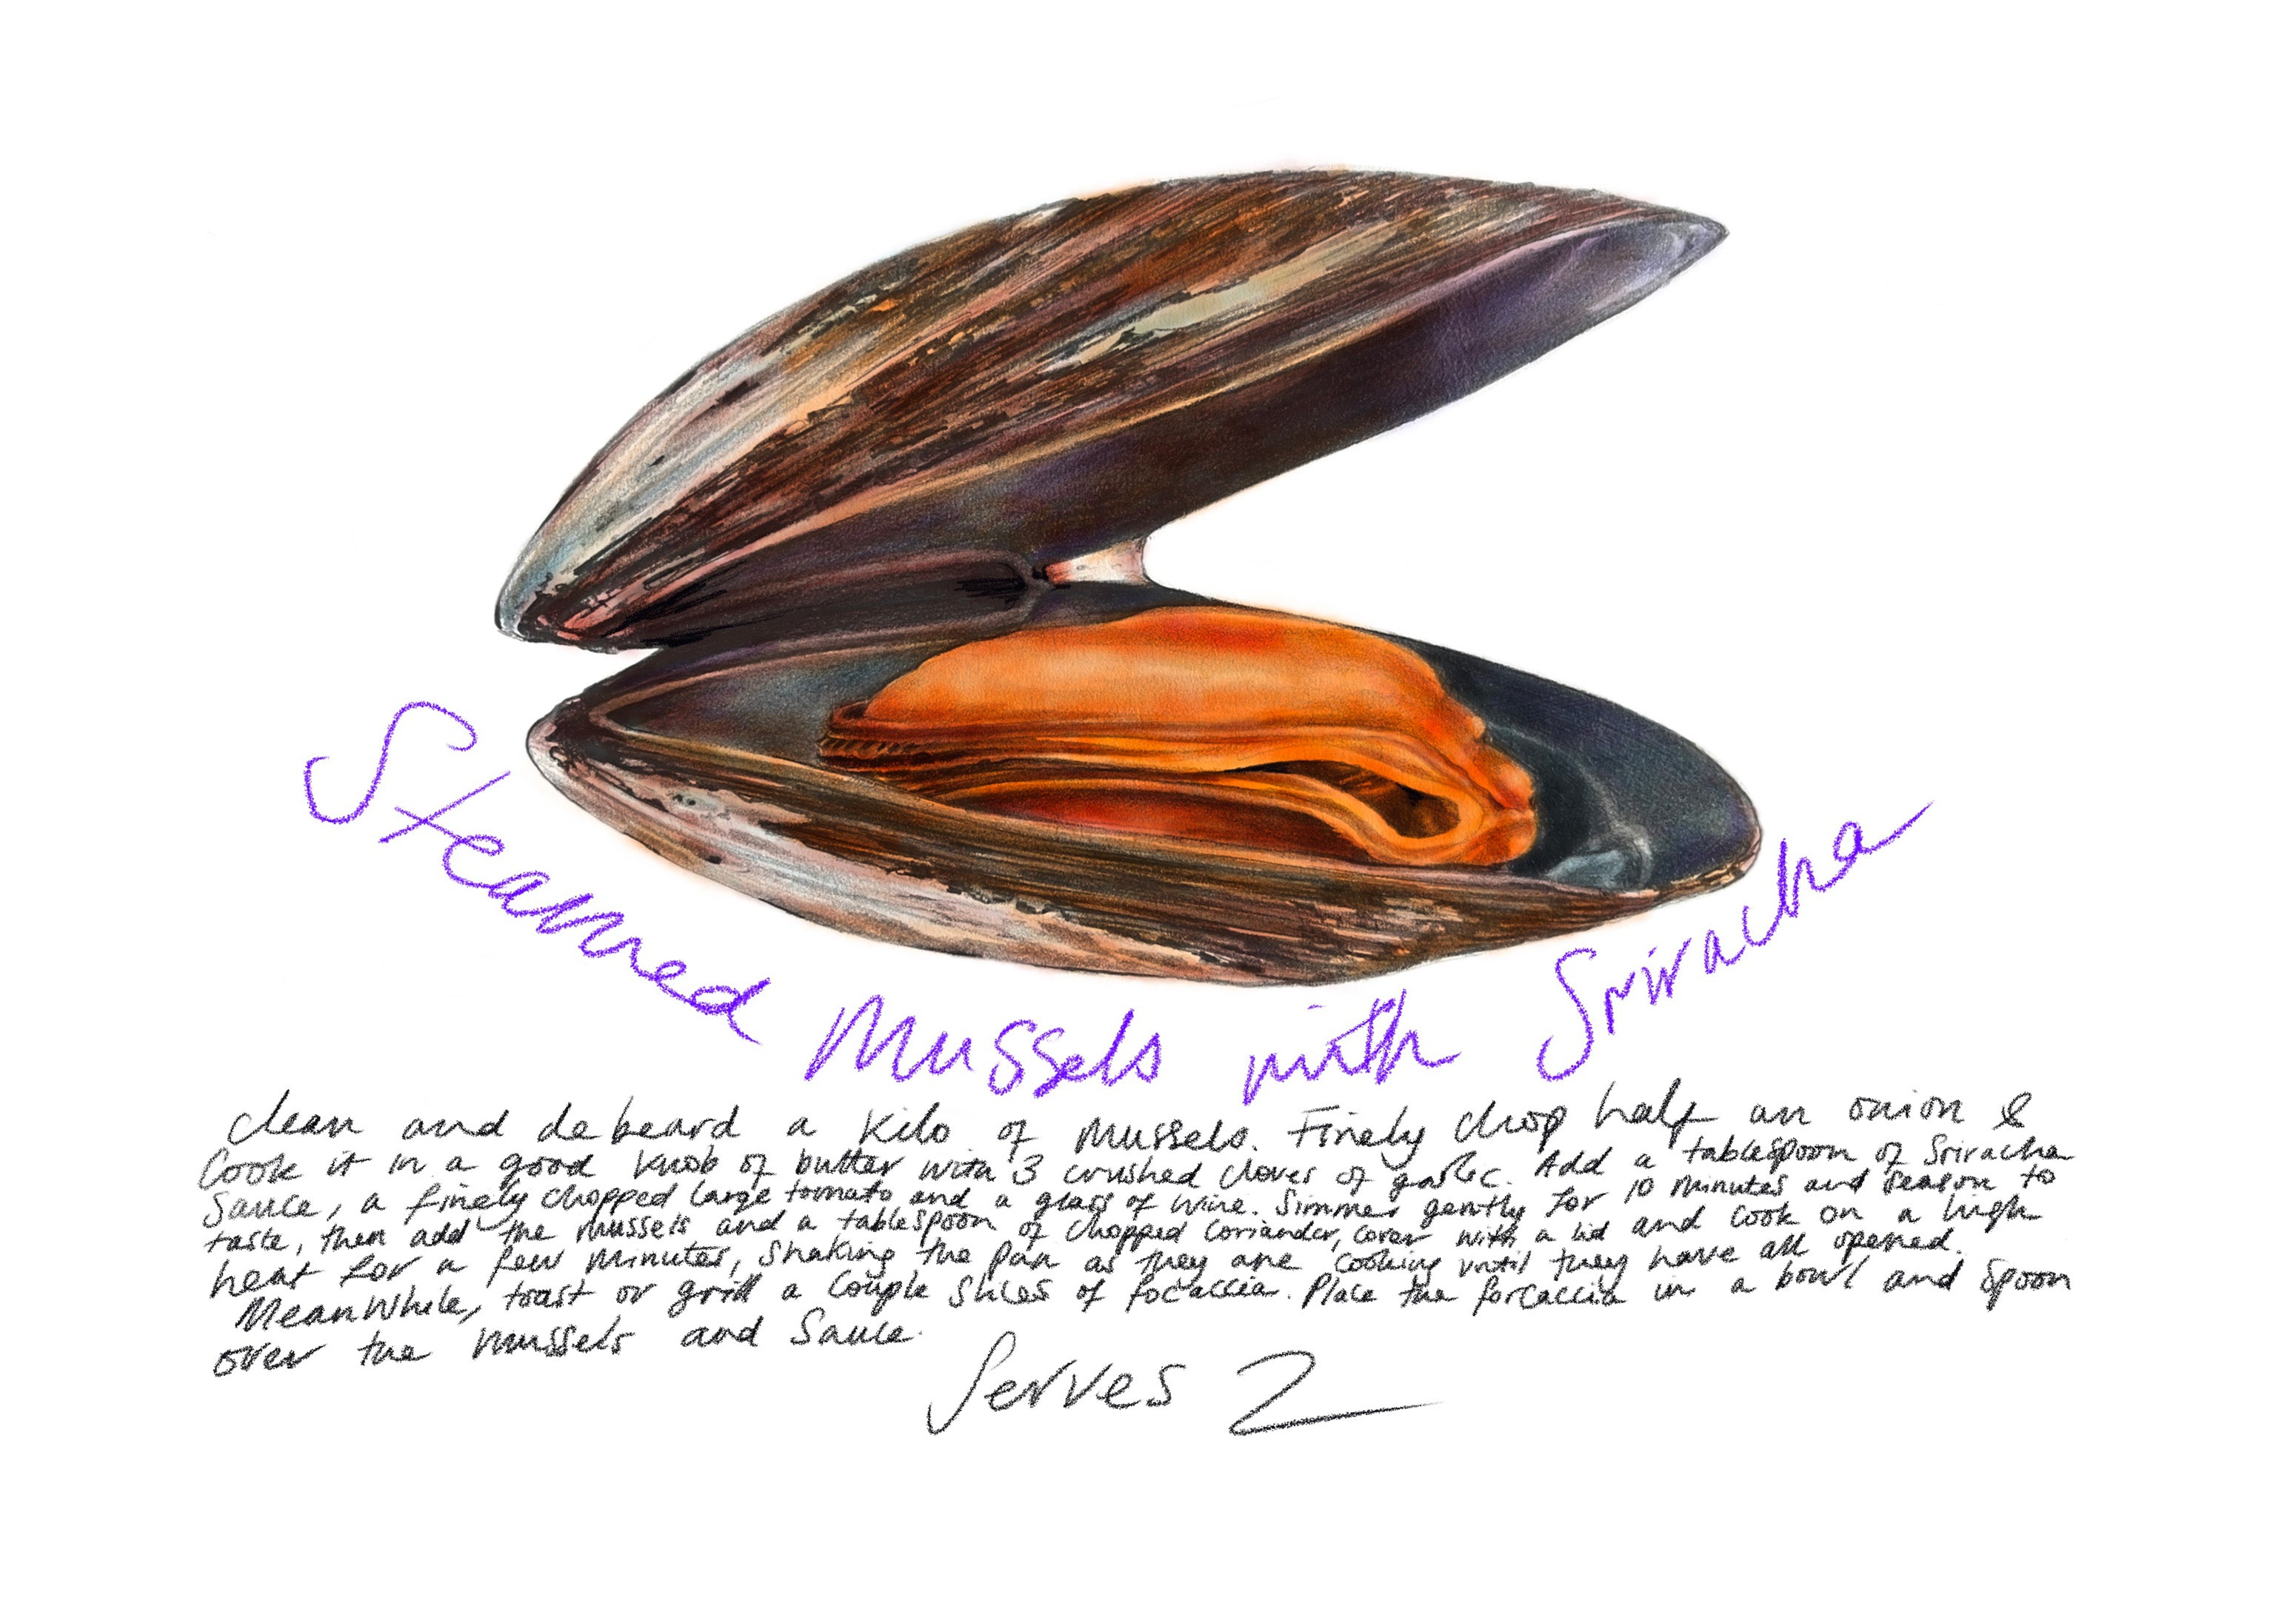 Steamed Mussels with Sriracha
Clean and debeard a kilo of mussels. Finely chop half an onion &
Cook it in a good knob of butter with 3 crushed cloves of garlic. Add a tablespoon of Sriracha
Sauce, a finely chopped large tomato and a glass of wine. Simmer gently for 10 minutes and season to
taste, then add the mussels and a tablespoon of chopped coriander, cover with a lid and cook on a high
heat for a few minutes, shaking the pan as they are cooking until they have all opened.
Meanwhile, toast or grill a couple slices of focaccia. Place the forcaccia in a bowl and spoon
over the mussels and sauce.
Serves 2